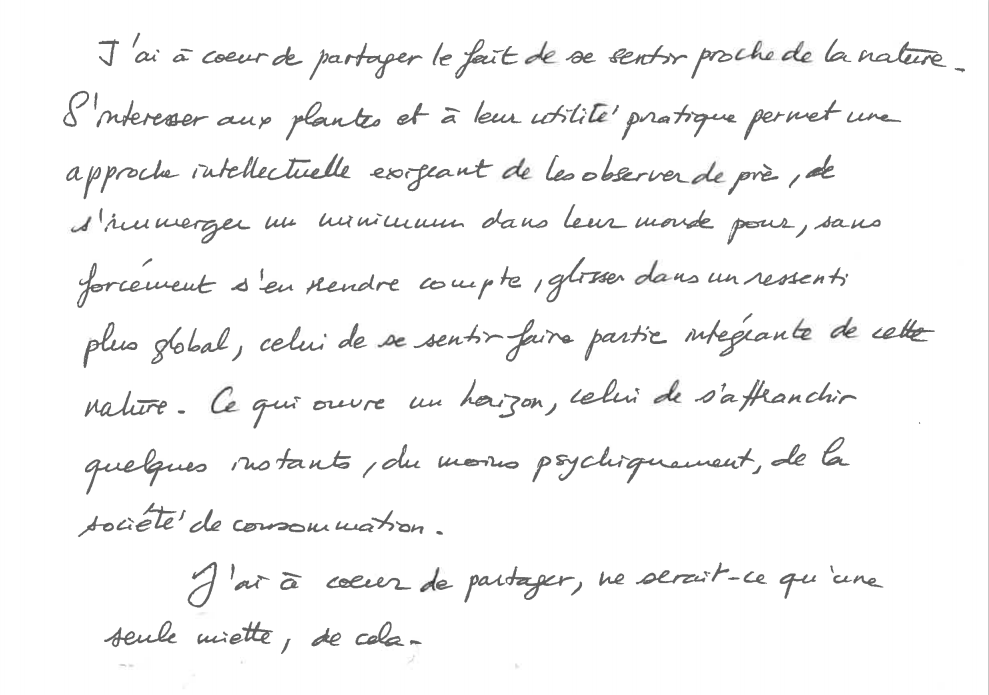 J'ai à coeur de partager le fait de se sentir proche de la nature.
S'interesser aux plantes et à leur utilité pratique permet une
approche intellectuelle exigeant de les observer de près, de
s'immerger un minimum dans leur monde pour, sans
forcément s'en rendre compte, glisser dans un ressenti
plus global, celui de se sentir faire partie intégrante de cette
nature. Ce qui ouvre un horizon, celui de s'affranchir
quelques instants, du moins psychiquement, de la
société de consommation.
J'ai à coeur de partager, ne serait-ce qu'une
seule miette, de cela.